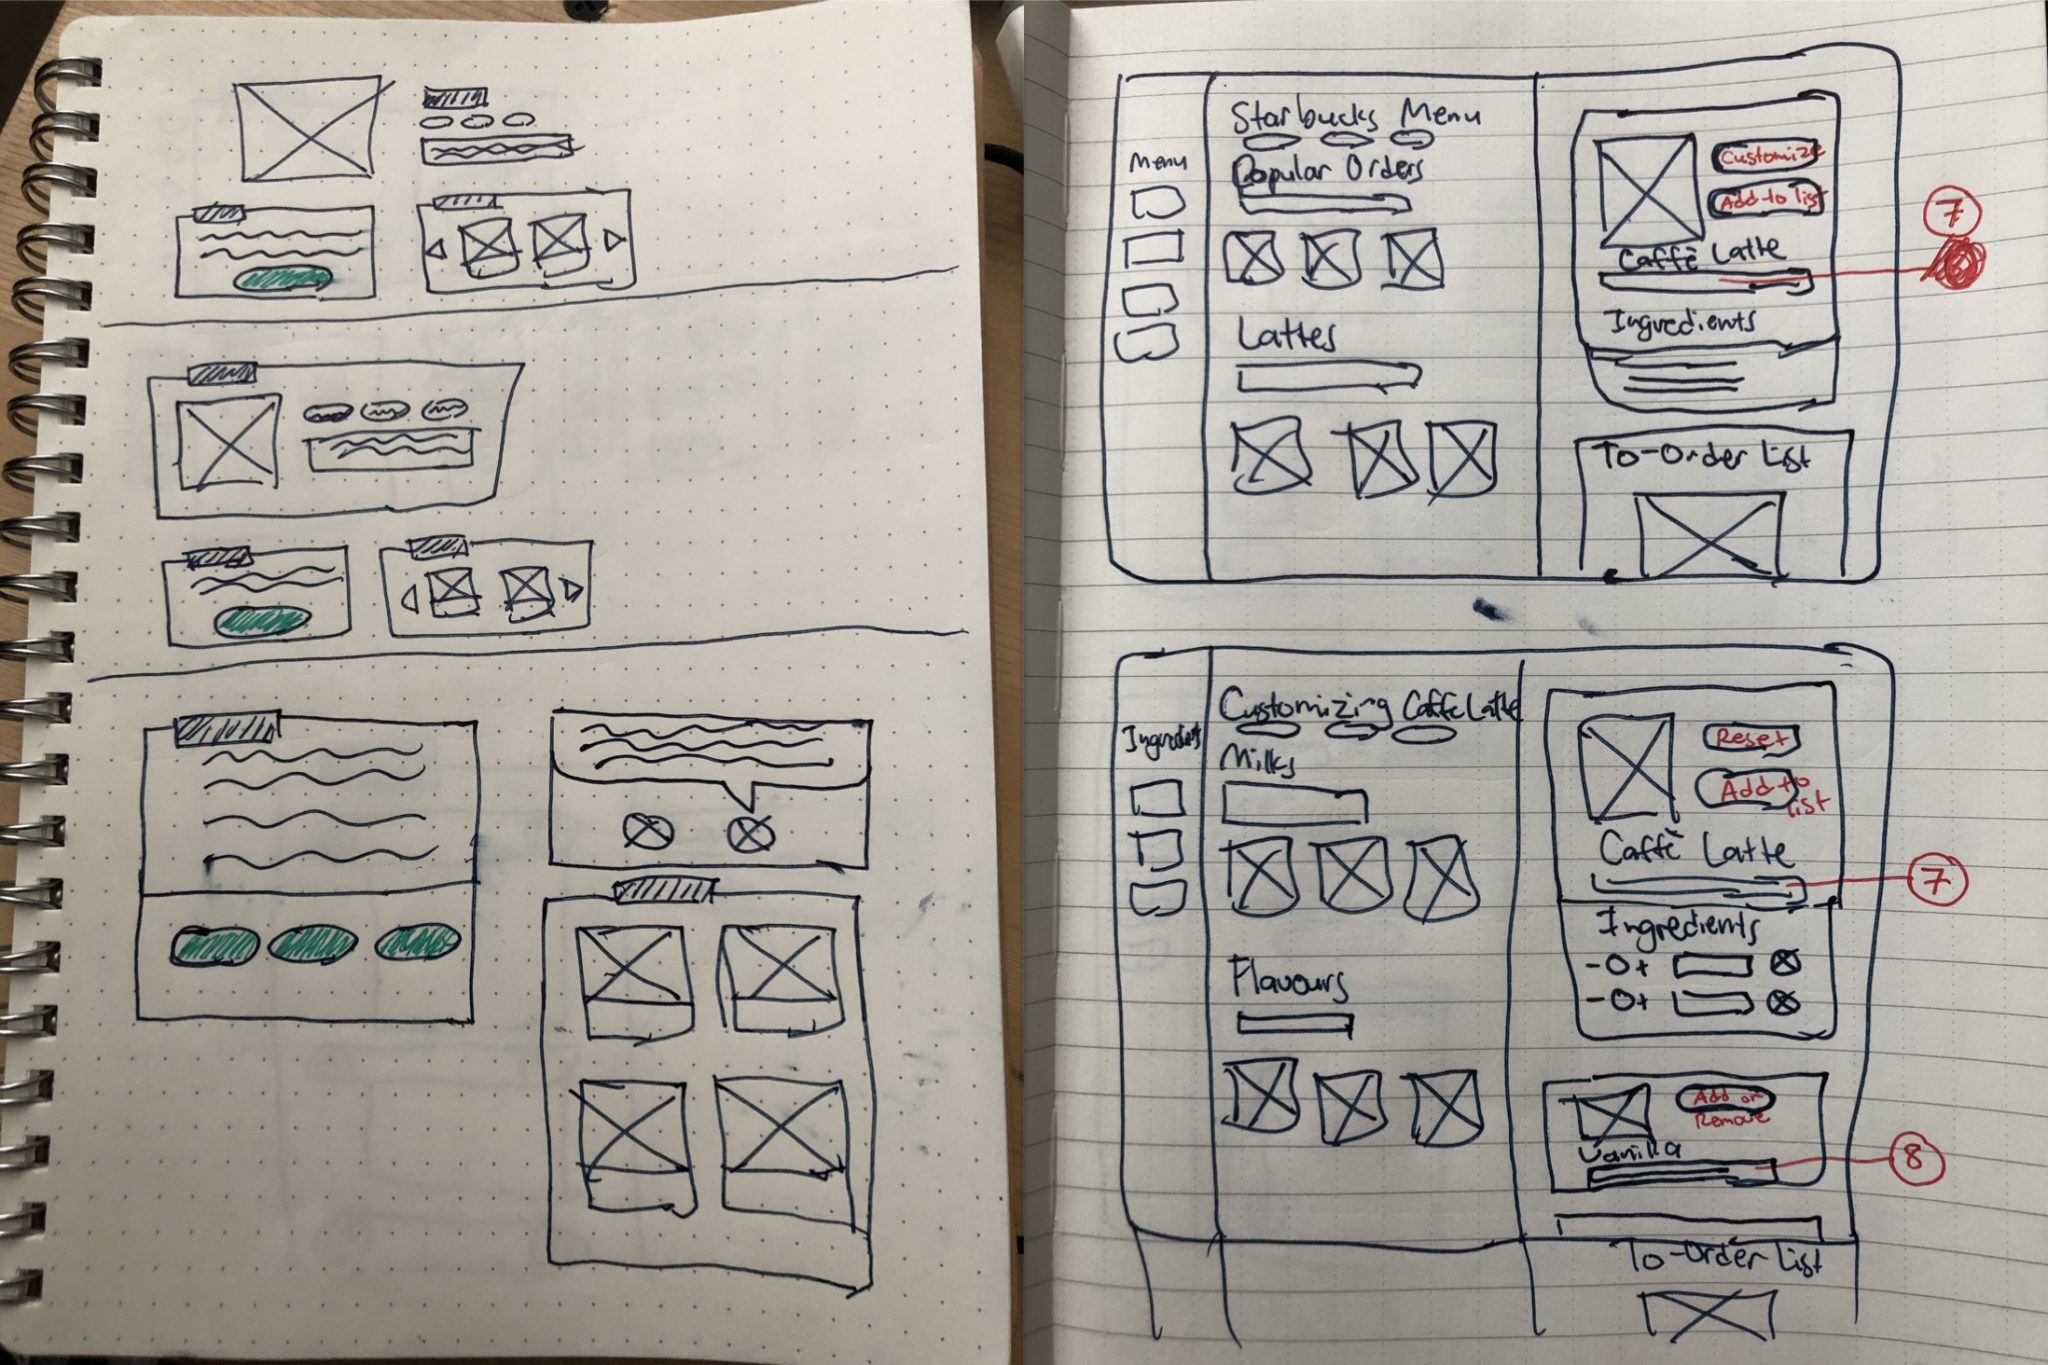 Starbucks Menu
Menu
Popular Orders
Lattes
Customize
Add to list
7
Caffè Latte
Ingredients
To-Order List
Customizing Caffè Latte
Ingredients
Milks
Flavours
Reset
Add to
list
Caffè Latte
7
Ingredients
- O +
- O +
Add or
Remove
Vanilla
8
To-Order List